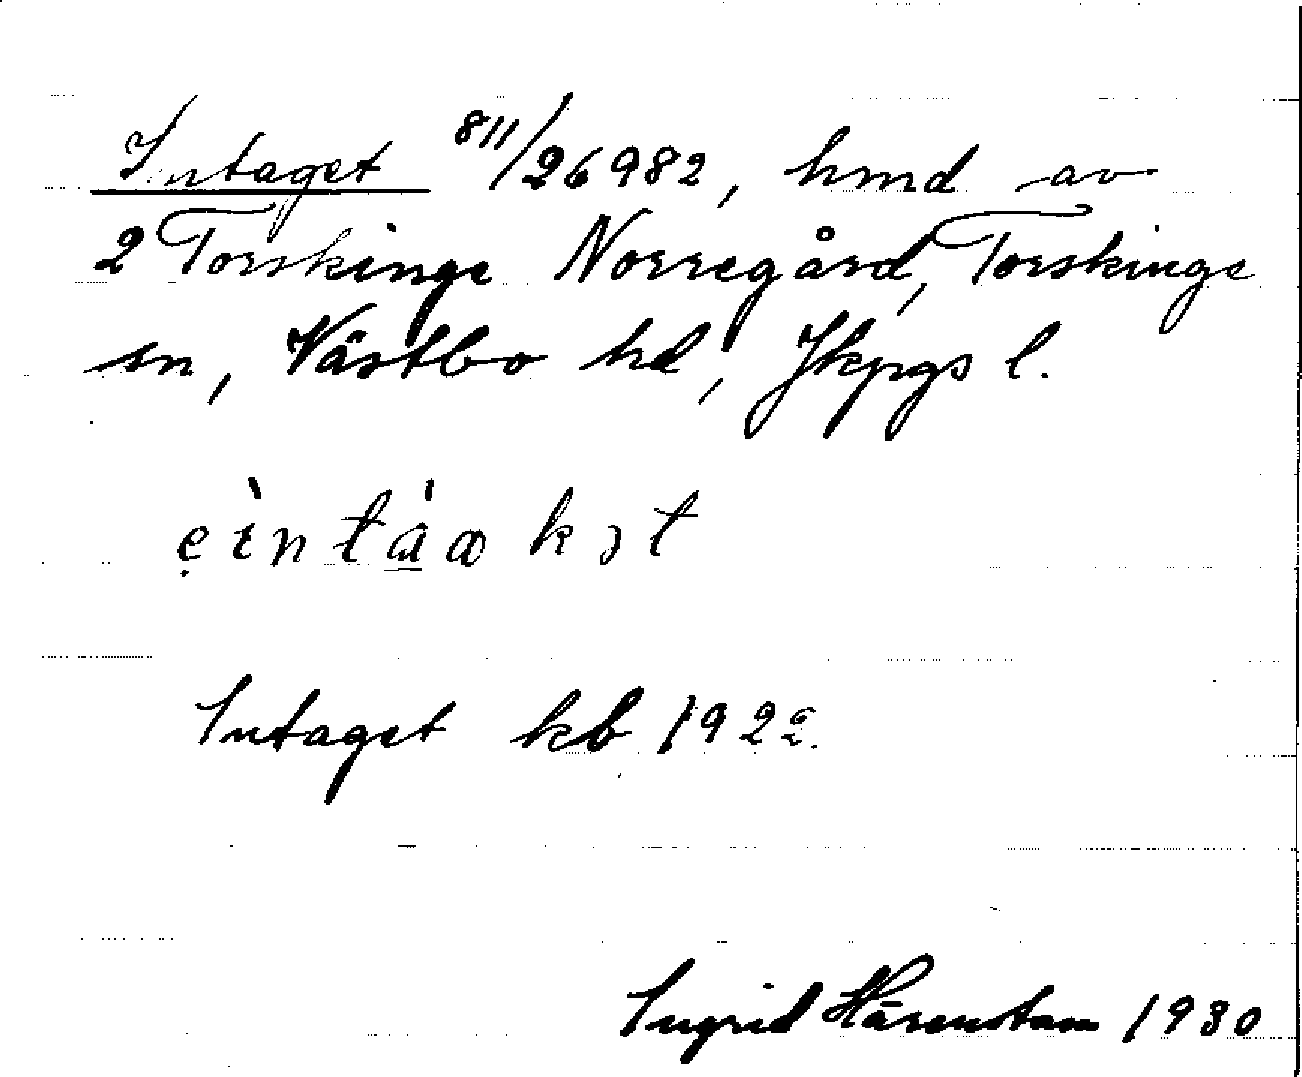 Intaget 811/26982, hmd av
2 Torskinge Norregård, Torskinge
sn, Västbo hd, Jkpgs l.
Intaget kb 1922.
Ingrid Härenstam 1930